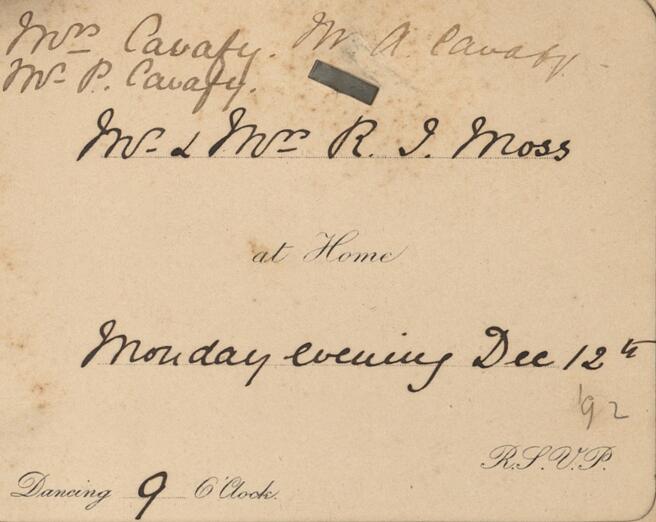 Mrs Cavafy. Mr A. Cavafy.
Mr P. Cavafy.
Mr & Mrs R. J. Moss
at Home
Monday evening Dec 12th
'92
R.S.V.P.
Dancing 9 O'Clock.